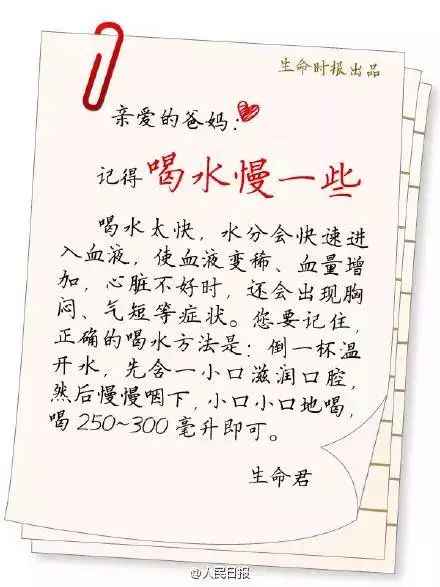 生命时报出品
亲爱的爸妈：
记得喝水慢一些
喝水太快，水分会快速进
入血液，使血液变稀、血量增
加，心脏不好时，还会出现胸
闷、气短等症状。您要记住，
正确的喝水方法是：倒一杯温
开水，先含一小口滋润口腔，
然后慢慢咽下，小口小口地喝，
喝250~300毫升即可。
生命君
@人民日报